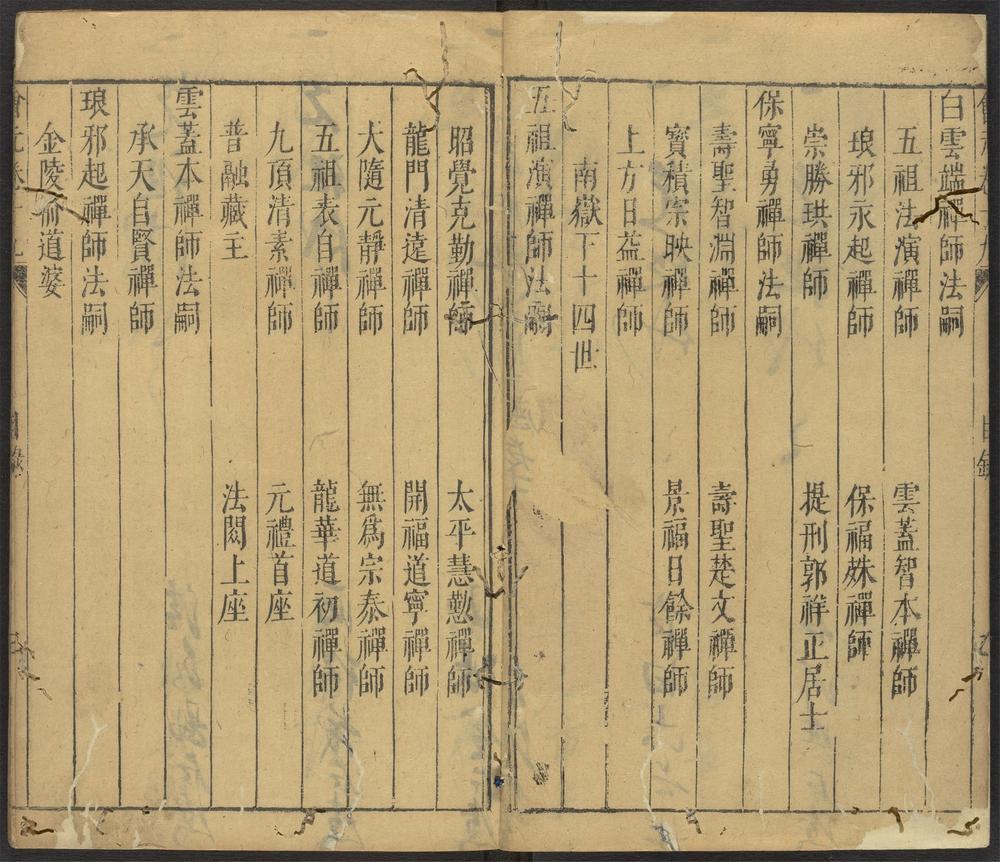 白雲端禪師法嗣
五祖法演禪師 雲蓋智本禪師
琅邪永起禪師 保福姝禪師
崇勝珙禪師 提刑郭祥正居士
保寧勇禪師法嗣
壽聖智淵禪師 壽聖楚文禪師
寶積宗映禪師 景福日餘禪師
上方日益禪師
南嶽下十四世
五祖演禪師法嗣
昭覺克勤禪師 太平慧懃禪師
龍門清遠禪師 開福道寧禪師
大隨元靜禪師 無爲宗泰禪師
五祖表自禪師 龍華道初禪師
九頂清素禪師 元禮首座
普融藏主 法閦上座
雲蓋本禪師法嗣
承天自賢禪師
琅邪起禪師法嗣
金陵俞道婆
會元卷十九 目錄